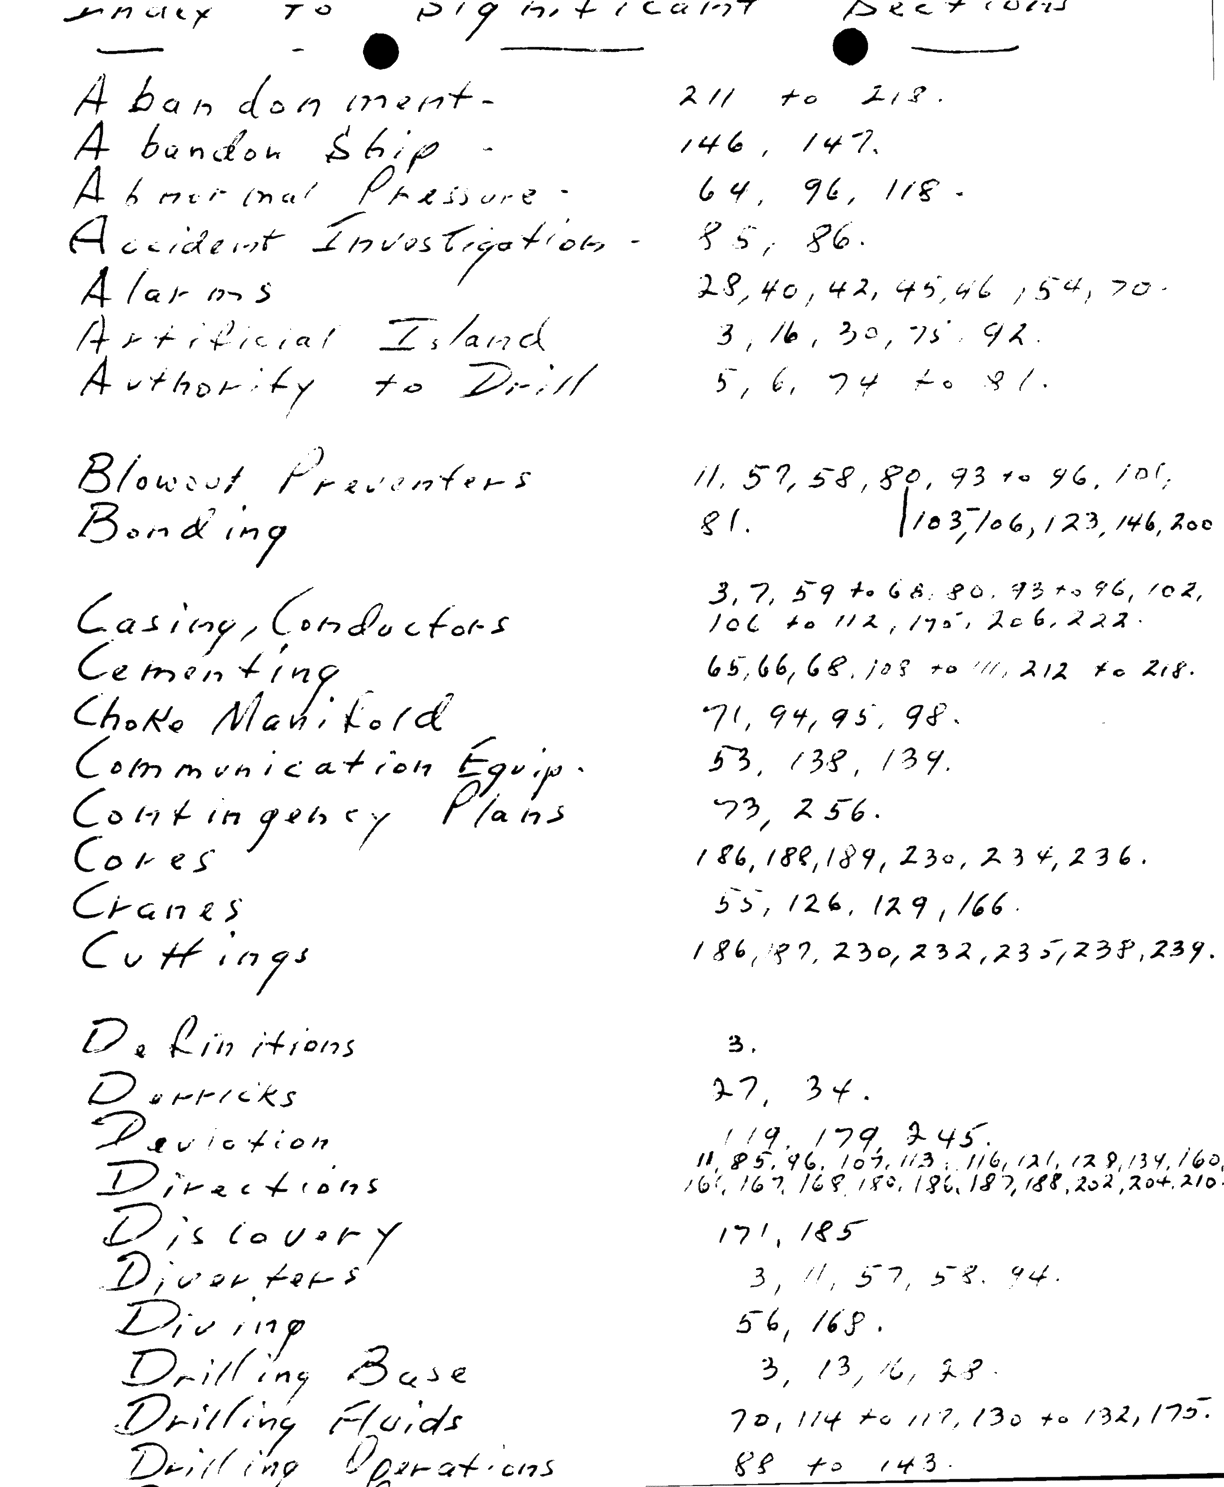 Index To Significant Sections
Abandonment - 211 to 218.
Abandon Ship - 146, 147.
Abnormal Pressure - 64, 96, 118.
Accident Investigation - 85, 86.
Alarms 28, 40, 42, 45, 46, 54, 70.
Artificial Island 3, 16, 30, 75, 92.
Authority to Drill 5, 6, 74 to 81.
Blowout Preventers 11, 57, 58, 80, 93 to 96, 101,
Bonding 81. 103, 106, 123, 146, 200
3, 7, 59 to 68, 80, 93 to 96, 102,
Casing, Conductors 106 to 112, 175, 206, 222.
Cementing 65, 66, 68, 108 to 111, 212 to 218.
Choke Manifold 71, 94, 95, 98.
Communication Equip. 53, 138, 139.
Contingency Plans 73, 256.
Cores 186, 188, 189, 230, 234, 236.
Cranes 55, 126, 129, 166.
Cuttings 186, 187, 230, 232, 235, 238, 239.
Definitions 3.
Derricks 27, 34.
Deviation 119, 179, 245.
11, 85, 96, 107, 113, 116, 121, 128, 134, 160,
Directions 161, 167, 168, 180, 186, 187, 188, 202, 204, 210.
Discovery 171, 185
Diverters 3, 11, 57, 58, 94.
Diving 56, 168.
Drilling Base 3, 13, 16, 28.
Drilling Fluids 70, 114 to 117, 130 to 132, 175.
Drilling Operations 88 to 143.